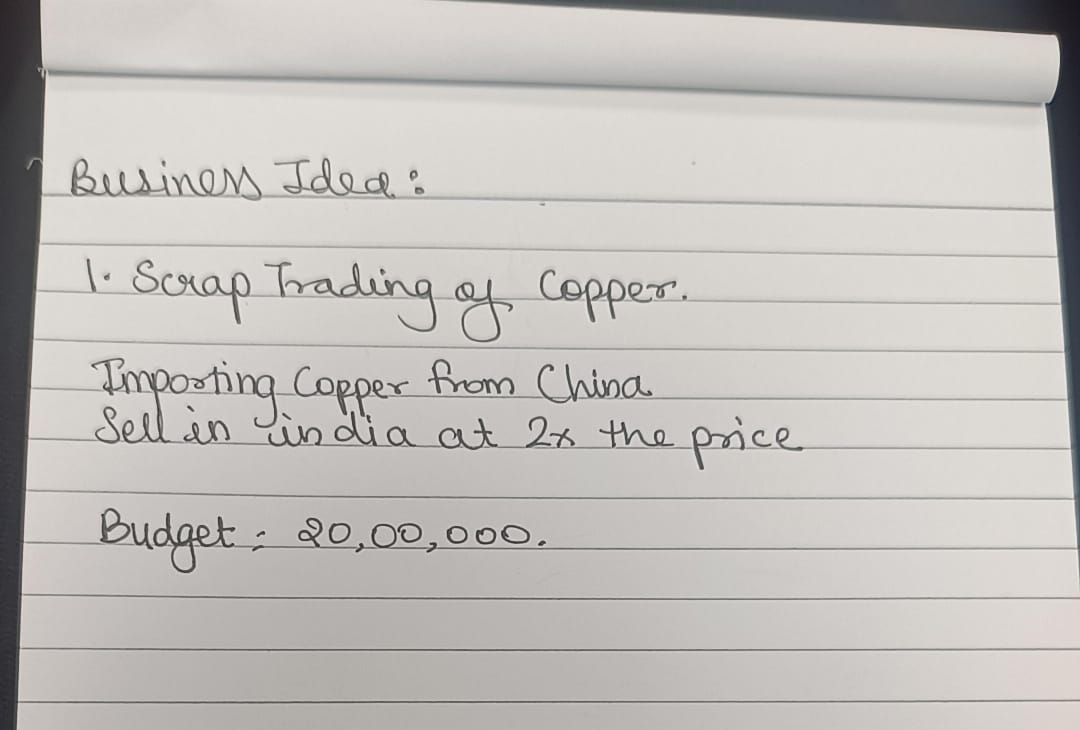 Business Idea:
1. Scrap Trading of Copper.
Importing Copper from China
Sell in india at 2x the price
Budget: 20,00,000.